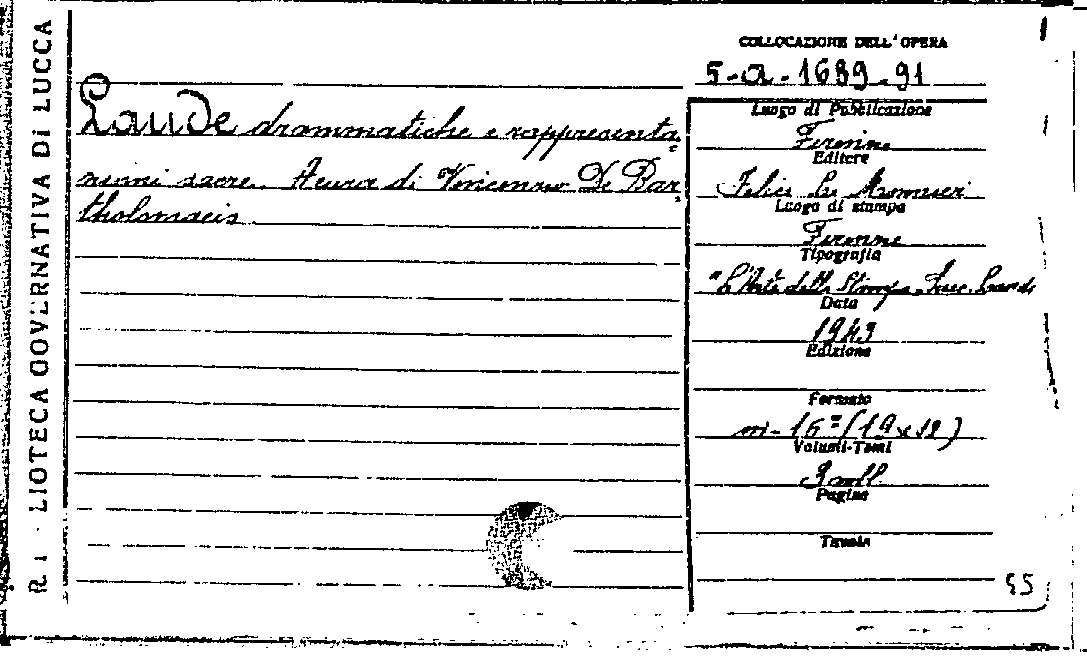 R. BIBLIOTECA GOVERNATIVA DI LUCCA
COLLOCAZIONE DELL'OPERA
5-a-1689-91
Laude drammatiche e rappresenta
zioni sacre. A cura di Vincenzo De Bar
tholomaeis
Luogo di Pubblicazione
Firenze
Editore
Felice Le Monnier
Luogo di stampa
Firenze
Tipografia
"L'Arte della Stampa" Succ. Landi
Data
1943
Edizione
Formato
in-16° (19x12)
Volumi-Tomi
3 voll.
Pagine
Tavole
55